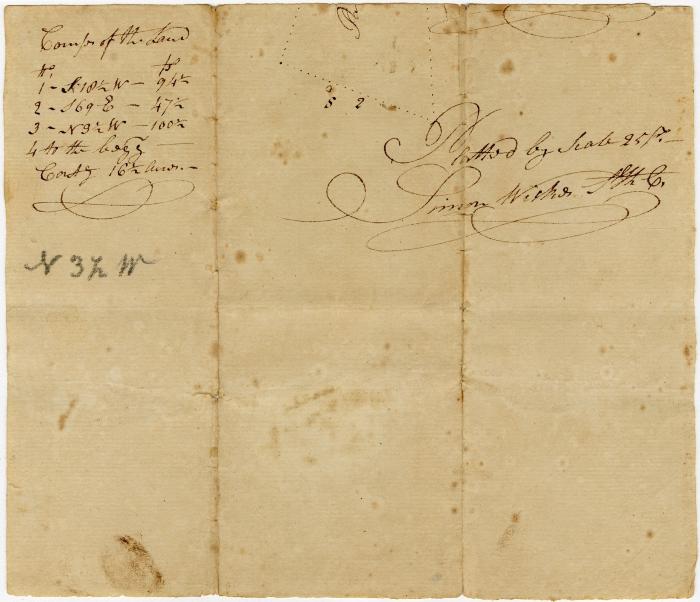 Comps of the Land
No. Ps
1 - S 18½ W - 94½
2 - S 69 E - 47½
3 - N 3½ W - 100½
4 to the begg
Contg 16½ Acres. -
5 2
Platted by Scale 25 ps. -
Simon Wilmer
N 3½ W